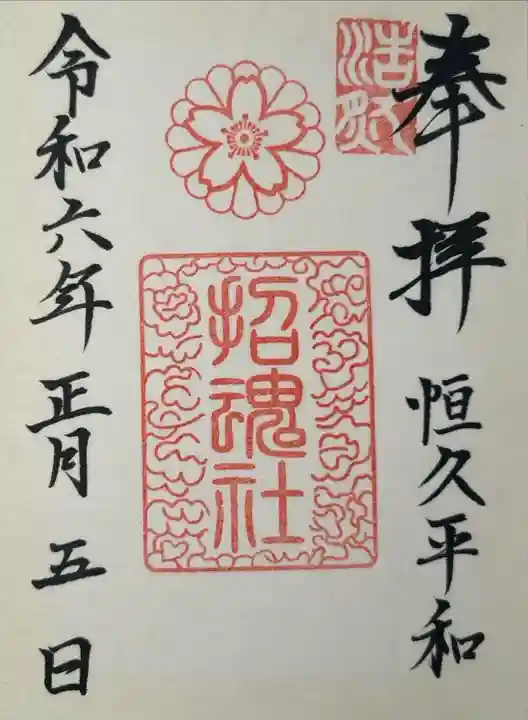 奉拝 恒久平和
招魂社
令和六年 正月 五日